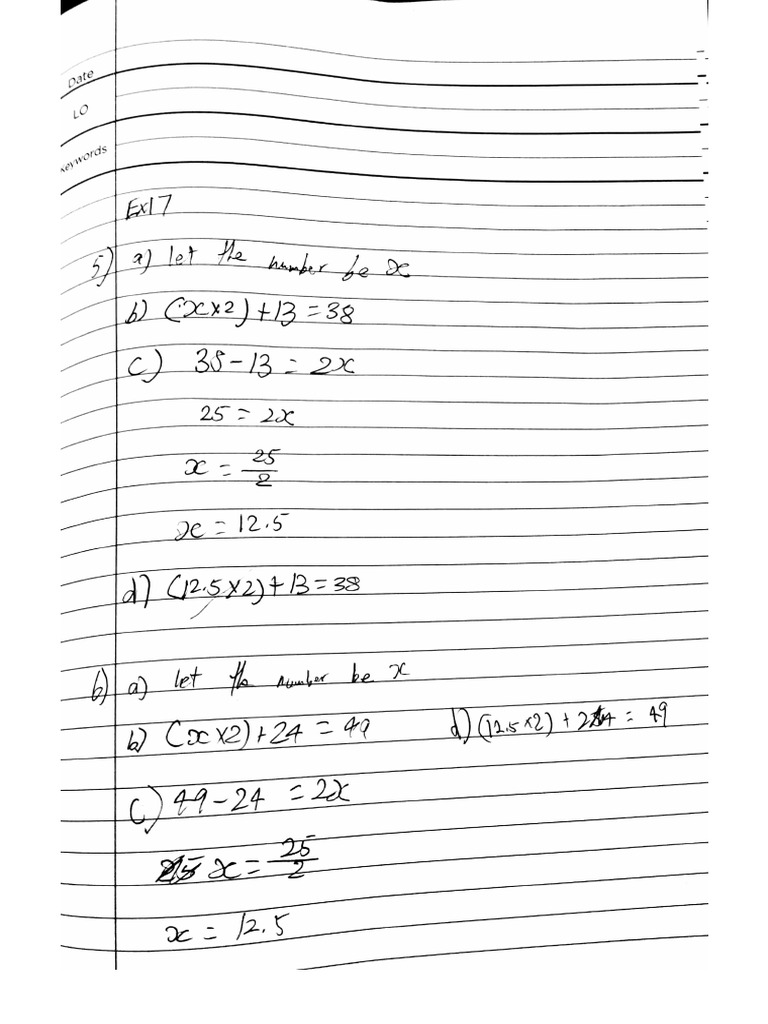 Date
LO
Keywords
Ex17
5) a) let the number be x
b) (x×2)+13=38
c) 38-13=2x
25=2x
x=25/2
x=12.5
d) (12.5×2)+13=38
6) a) let the number be x
b) (x×2)+24=49
d) (12.5×2)+24=49
c) 49-24=2x
x=25/2
x=12.5